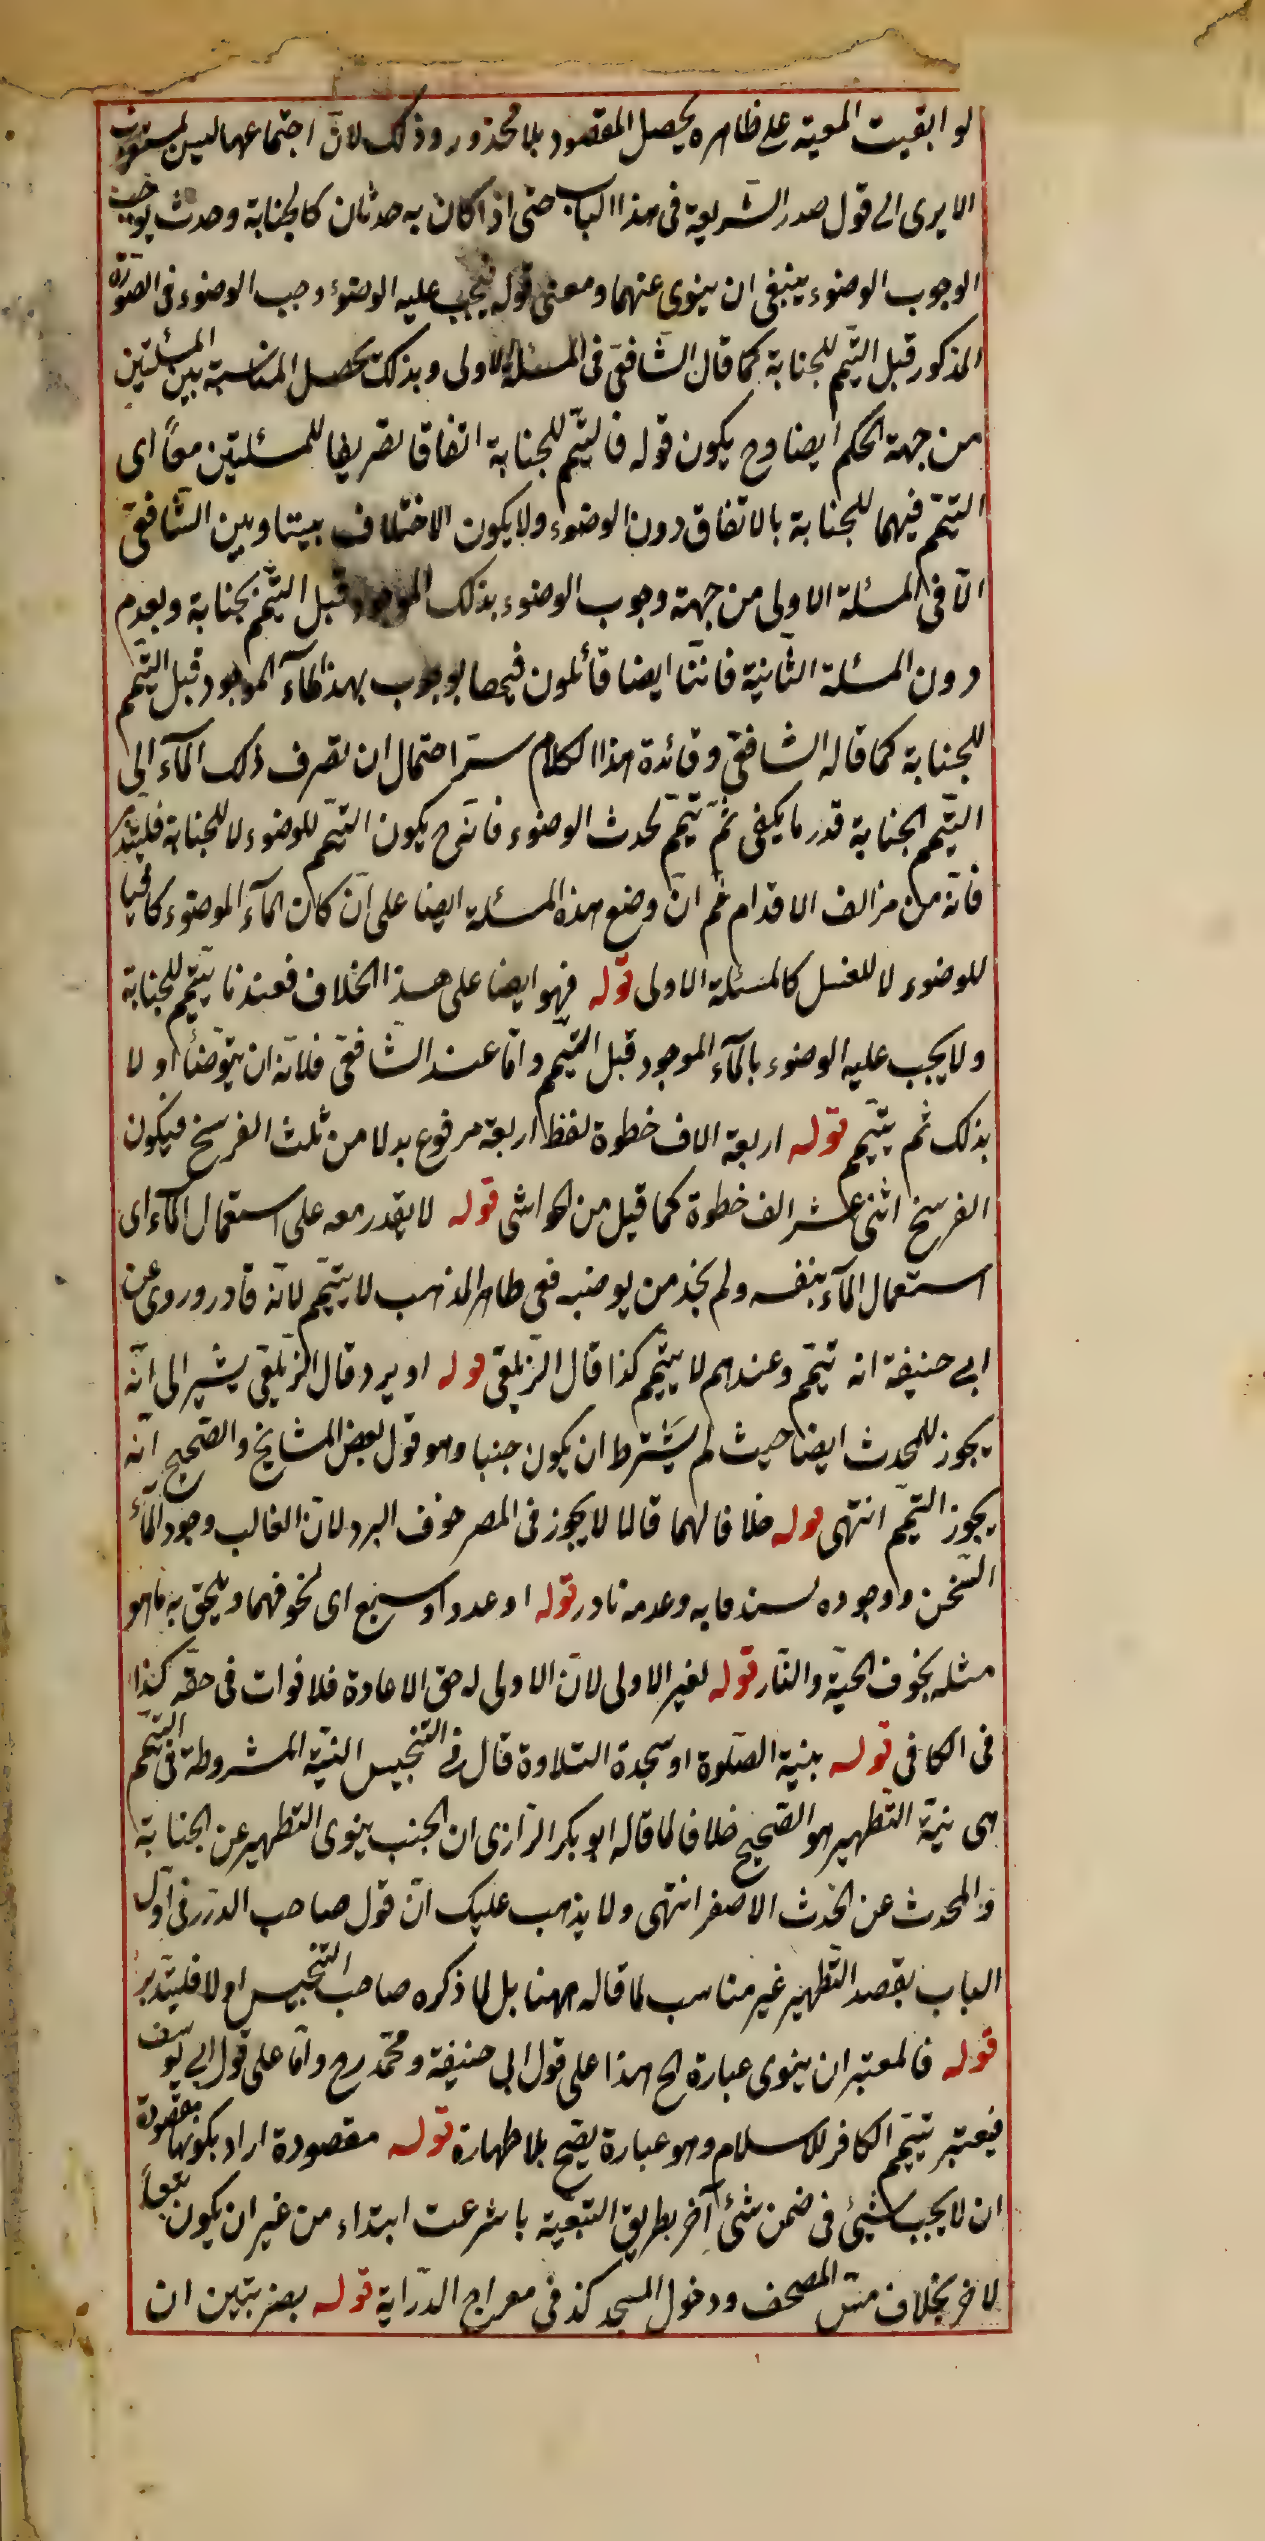 لو ابقيت المعية على ظاهره يحصل المقصود بلا محذور وذلك لان اجتماعهما ليس
الا يرى الى قول صدر الشريعة فى هذا الباب حتى اذا كان به حدثان كالجنابة وحدث يوجب
الوجوب الوضوء ينبغى ان ينوى عنهما ومعنى قوله فيجب عليه الوضوء وجب الوضوء فى الصورة
المذكور قبل التيمم للجنابة كما قال الشافعى فى المسئلة الاولى وبذلك يحصل المناسبة بين المسئلتين
من جهة الحكم ايضا وح يكون قوله فالتيمم للجنابة اتفاقا تفريعا للمسئلتين معاً اى
التيمم فيهما للجنابة بالاتفاق دون الوضوء ولا يكون الاختلاف بيننا وبين الشافعى
الا فى المسئلة الاولى من جهة وجوب الوضوء بذلك الموجود قبل التيمم بجنابة وبعدم
دون المسئلة الثانية فاننا ايضا قائلون بوجوب بهذا المآء الموجود قبل التيمم
للجنابة كما قاله الشافعى وفائدة هذا الكلام ستر احتمال ان تصرف ذلك المآء الى
التيمم الجنابة قدر ما يكفى ثم تيمم لحدث الوضوء فانه ح يكون التيمم للوضوء لا للجنابة فليتدبر
فانه من مزالف الاقدام ثم ان وضع هذه المسئلة ايضا على ان كان المآء الموضوء كافيا
للوضوء لا للغسل كالمسئلة الاولى قوله فهو ايضا على هذا الخلاف فعندنا يتيمم للجنابة
ولا يجب عليه الوضوء بالمآء الموجود قبل التيمم واما عند الشافعى فلانه ان يتوضأ اولا
بذلك ثم يتيمم قوله اربعة الاف خطوة لفظ اربعة مرفوع بدلا من ثلث الفرسخ فيكون
الفرسخ اثنى عشر الف خطوة كما قيل من الحواشى قوله لا يقدر معه على استعمال المآء اى
استعمال المآء بنفسه ولم يجد من يوضيه ففى ظاهر المذهب لا يتيمم لانه قادر وروى عن
ابى حنيفة انه تيمم وعندهم لا يتيمم كذا قال الزيلعى قوله او برد قال الزيلعى يشير الى انه
يجوز للمحدث ايضا حيث لم يشترط ان يكون جنبا وهو قول بعض المشايخ والصحيح انه
يجوز التيمم انتهى قوله خلافا لهما قالا لا يجوز فى المصر خوف البرد لان الغالب وجود المآء
السخن ووجوده وعدمه نادر قوله او عدو او سبع اى لخوفهما ويلحق به ما هو
مثله بخوف الحية والنار قوله لغير الاولى لان الاولى له حق الاعادة فلا فوات فى حقه كذا
فى الكافى قوله بنية الصلوة او سجدة التلاوة قال فى التنجيس النية المشروطة فى التيمم
هى نية التطهير هو الصحيح خلافا لما قاله ابو بكر الرازى ان الجنب ينوى التطهير عن الجنابة
والمحدث عن الحدث الاصغر انتهى ولا يذهب عليك ان قول صاحب الدرر فى اول
الباب بقصد التطهير غير مناسب لما قاله ههنا بل لما ذكره صاحب التنجيس اولا فليتدبر
قوله فالمعتبر ان ينوى عبارة الخ هذا على قول ابى حنيفة ومحمد رح واما على قول ابى يوسف
فيعتبر تيمم الكافر للاسلام وهو عبارة يصح بلا طهارة قوله مقصودة اراد بكونها مقصودة
ان لا يجب شيئ فى ضمن شئ آخر بطريق التبعية با شرعت ابتداء من غير ان يكون تبعاً
لاخر بخلاف مس المصحف ودخول المسجد كذ فى معراج الدراية قوله بضربتين ان